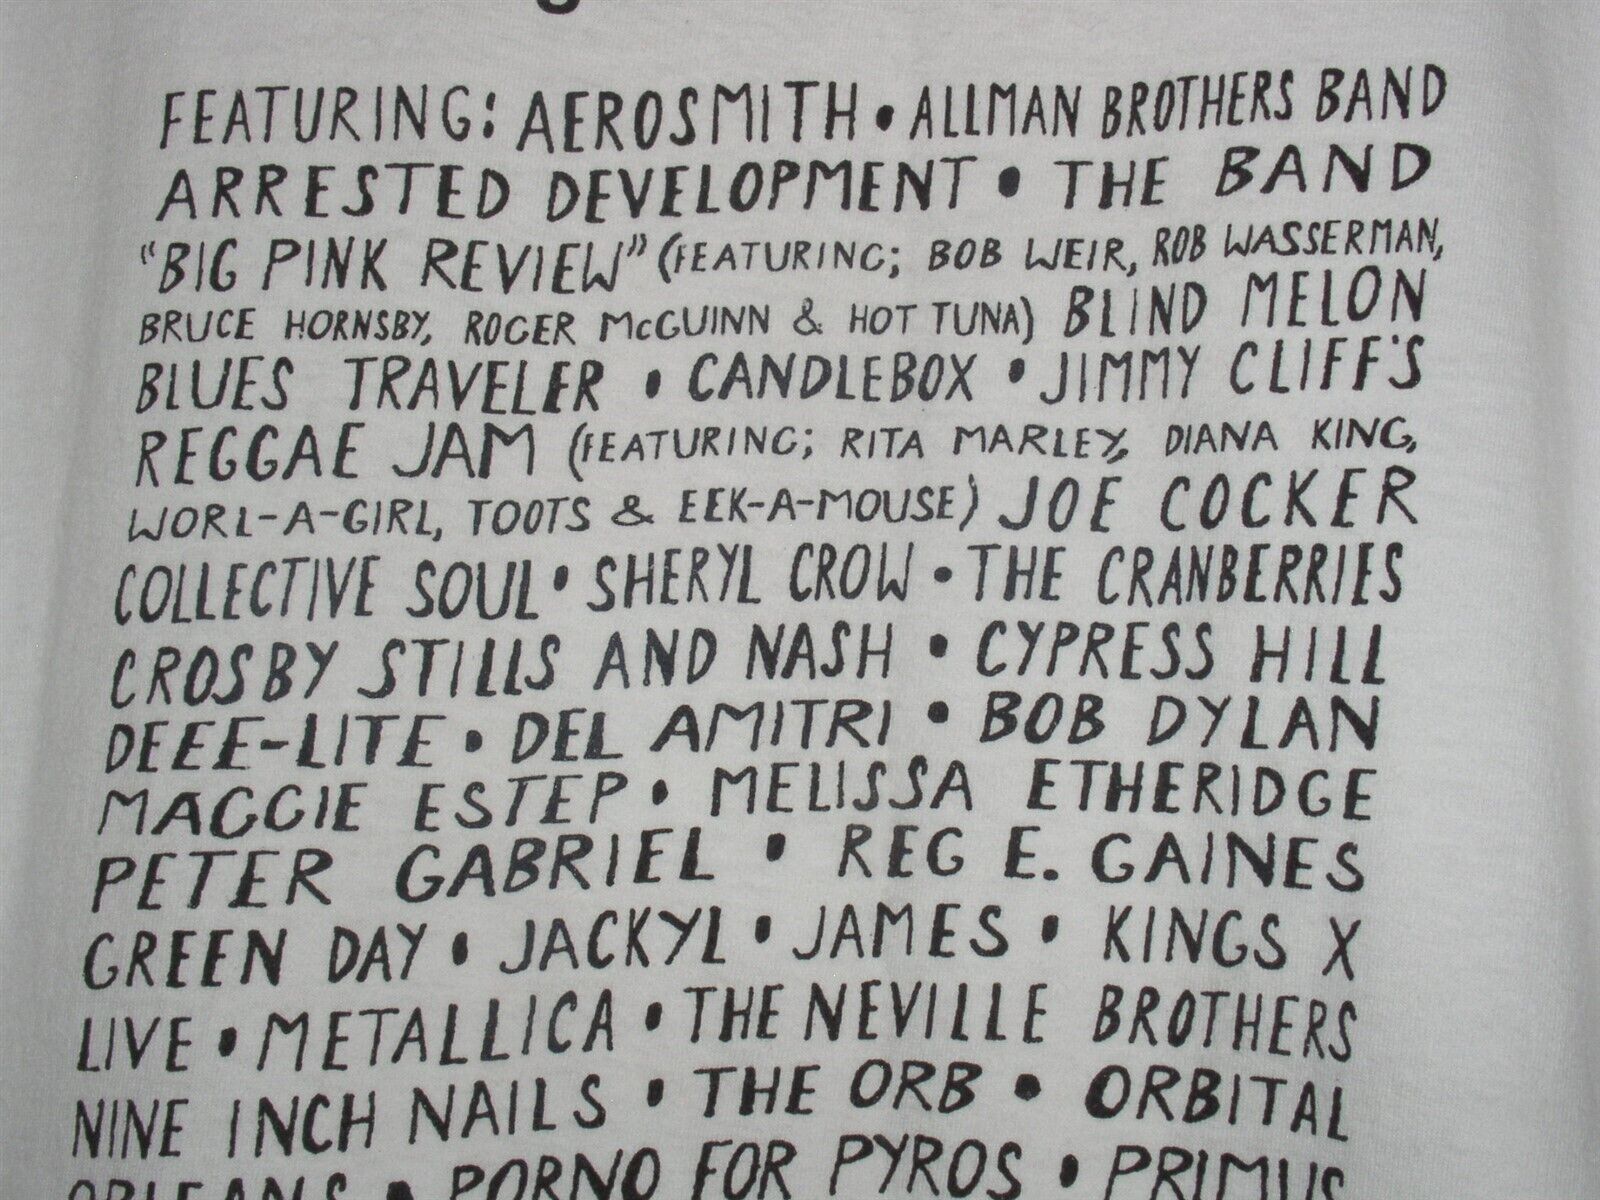 FEATURING: AEROSMITH • ALLMAN BROTHERS BAND
ARRESTED DEVELOPMENT • THE BAND
"BIG PINK REVIEW" (FEATURING; BOB WEIR, ROB WASSERMAN,
BRUCE HORNSBY, ROGER McGUINN & HOT TUNA) BLIND MELON
BLUES TRAVELER • CANDLEBOX • JIMMY CLIFF'S
REGGAE JAM (FEATURING; RITA MARLEY, DIANA KING,
WORL-A-GIRL, TOOTS & EEK-A-MOUSE) JOE COCKER
COLLECTIVE SOUL • SHERYL CROW • THE CRANBERRIES
CROSBY STILLS AND NASH • CYPRESS HILL
DEEE-LITE • DEL AMITRI • BOB DYLAN
MAGGIE ESTEP • MELISSA ETHERIDGE
PETER GABRIEL • REG E. GAINES
GREEN DAY • JACKYL • JAMES • KINGS X
LIVE • METALLICA • THE NEVILLE BROTHERS
NINE INCH NAILS • THE ORB • ORBITAL
ORLEANS • PORNO FOR PYROS • PRIMUS